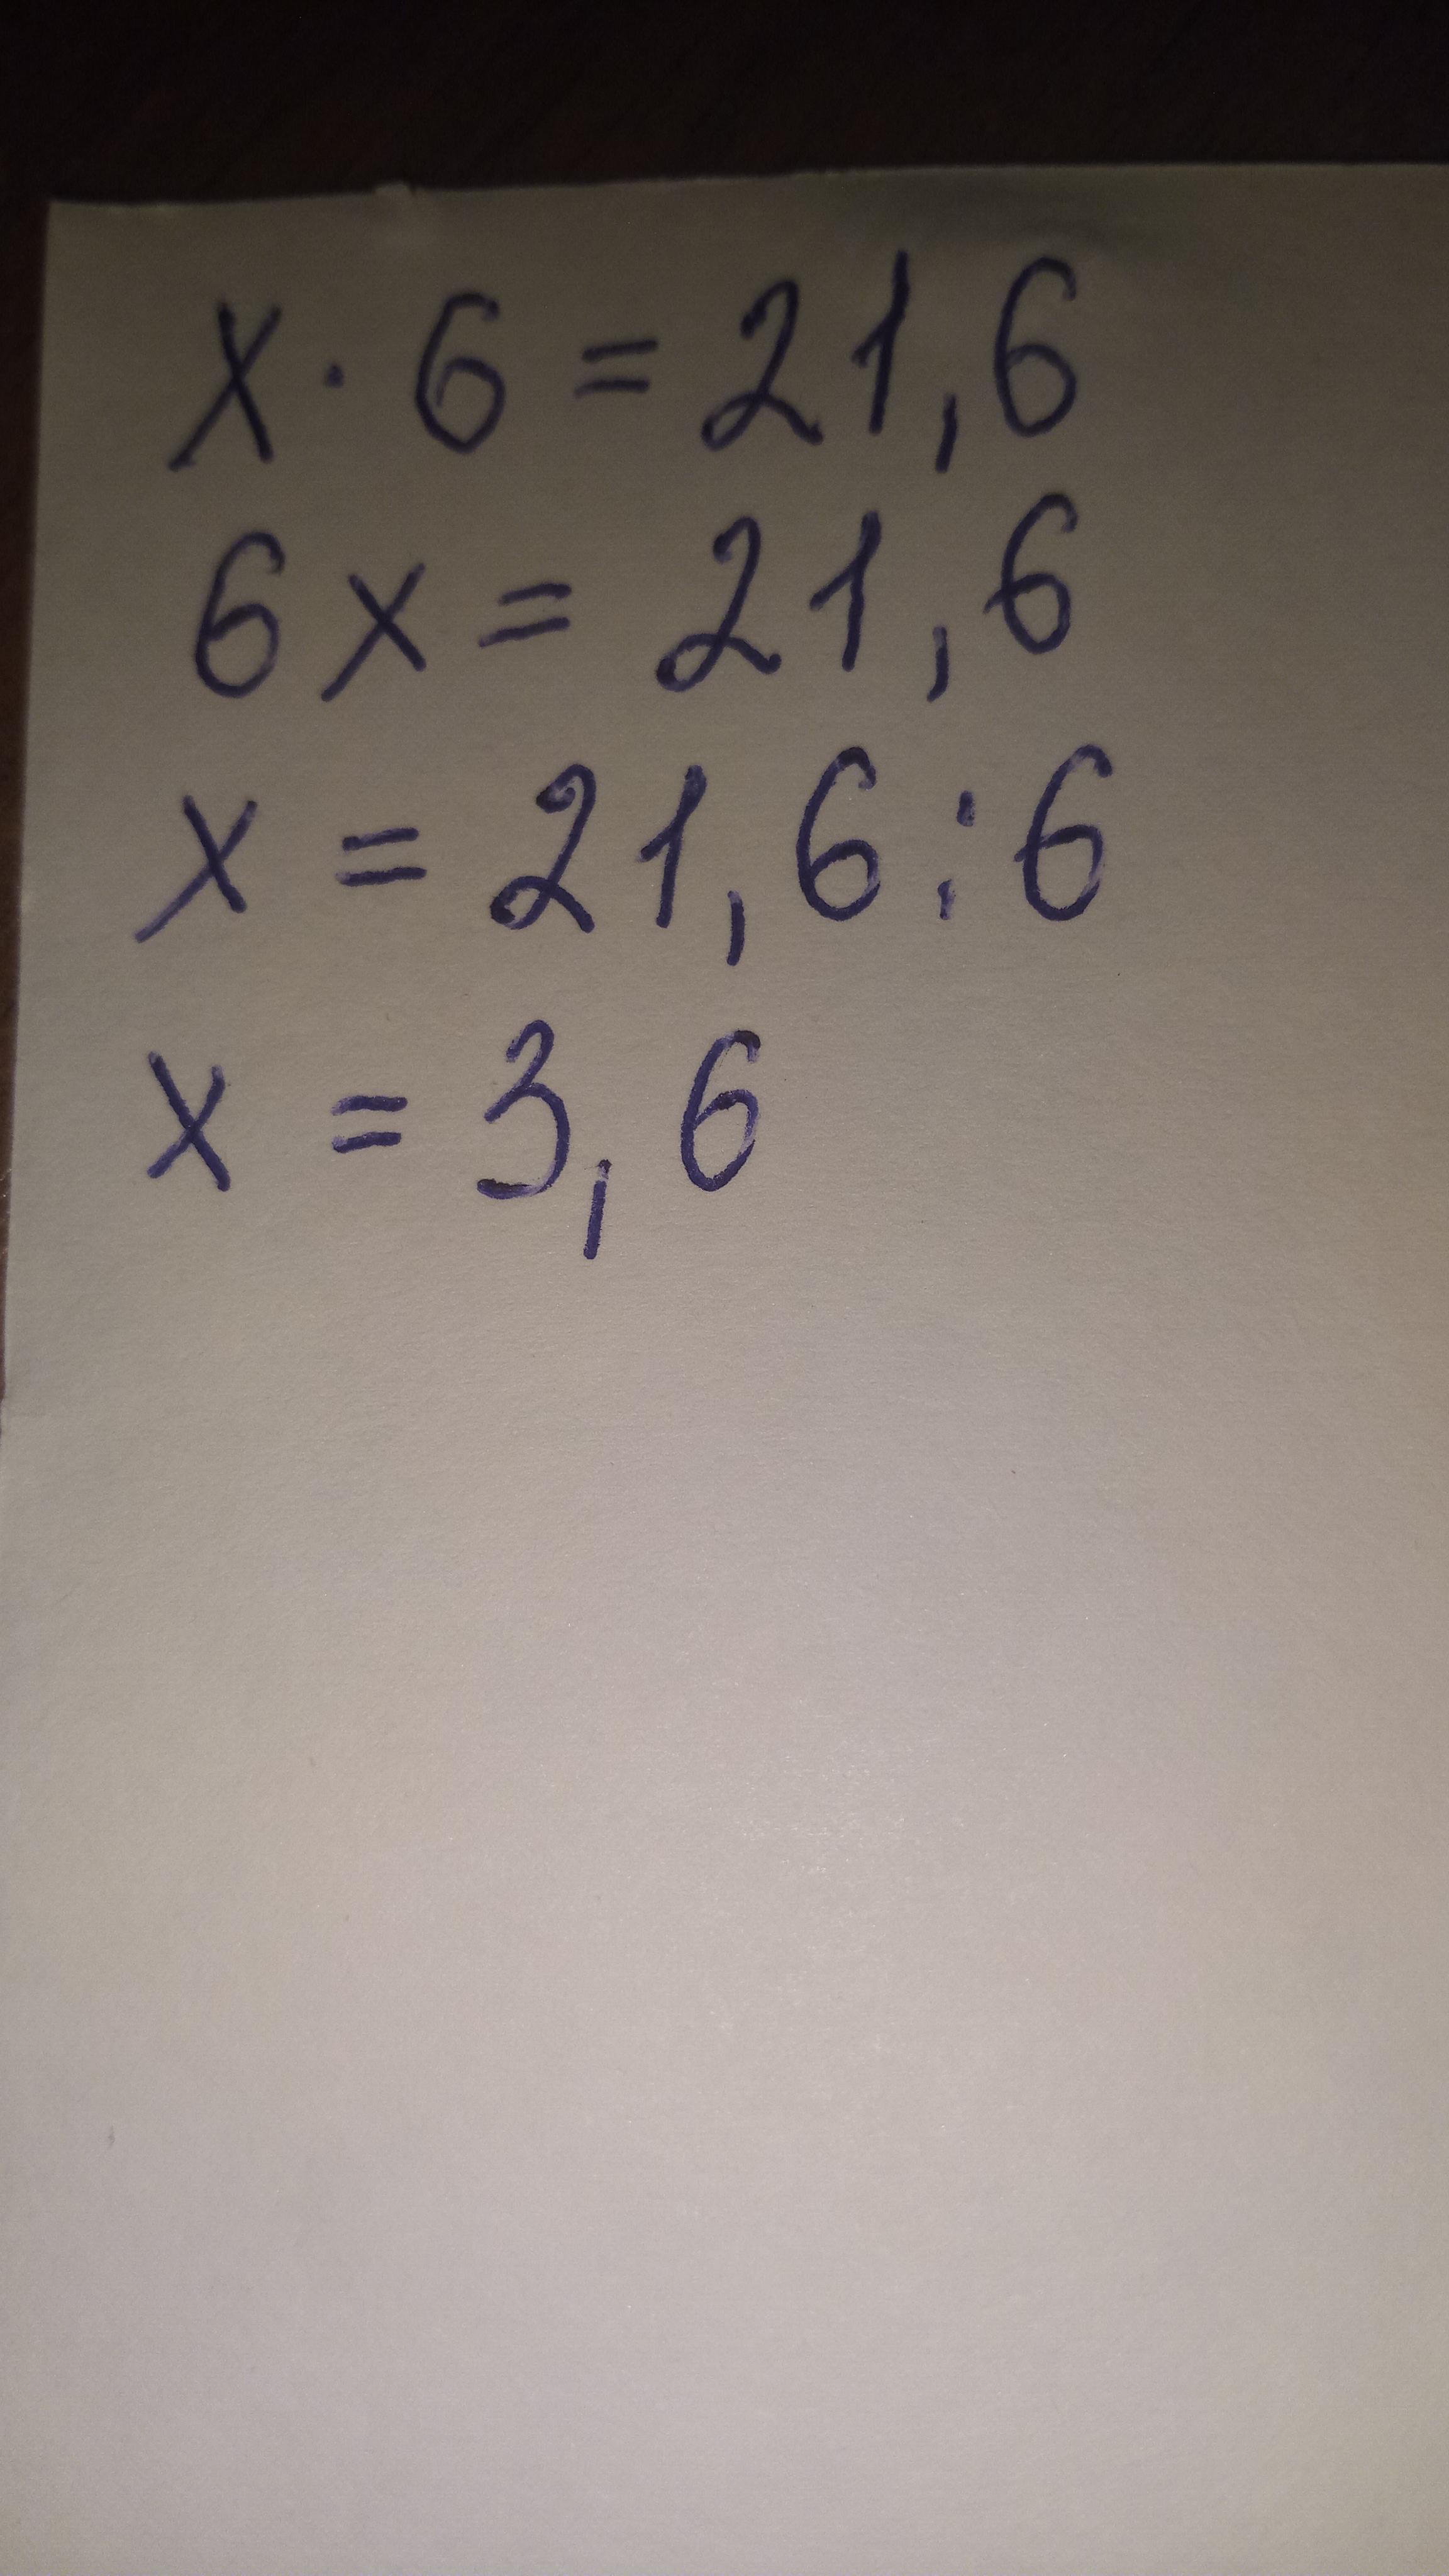 x · 6 = 21,6
6x = 21,6
x = 21,6 : 6
x = 3,6